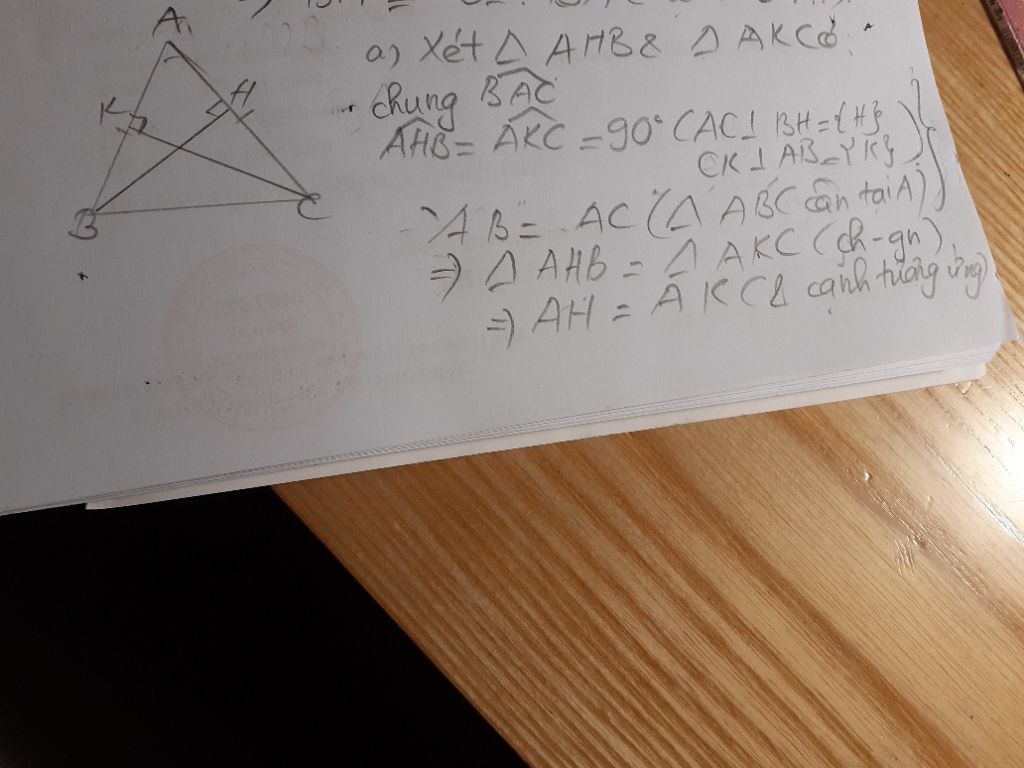 A
K
H
B
C
a) Xét Δ AHB & Δ AKC có
chung BAC
AHB = AKC = 90° (AC⊥ BH = {H}
CK⊥ AB = {K})
AB = AC (Δ ABC cân tại A)
=> Δ AHB = Δ AKC (ch-gn)
=> AH = AK (2 cạnh tương ứng)